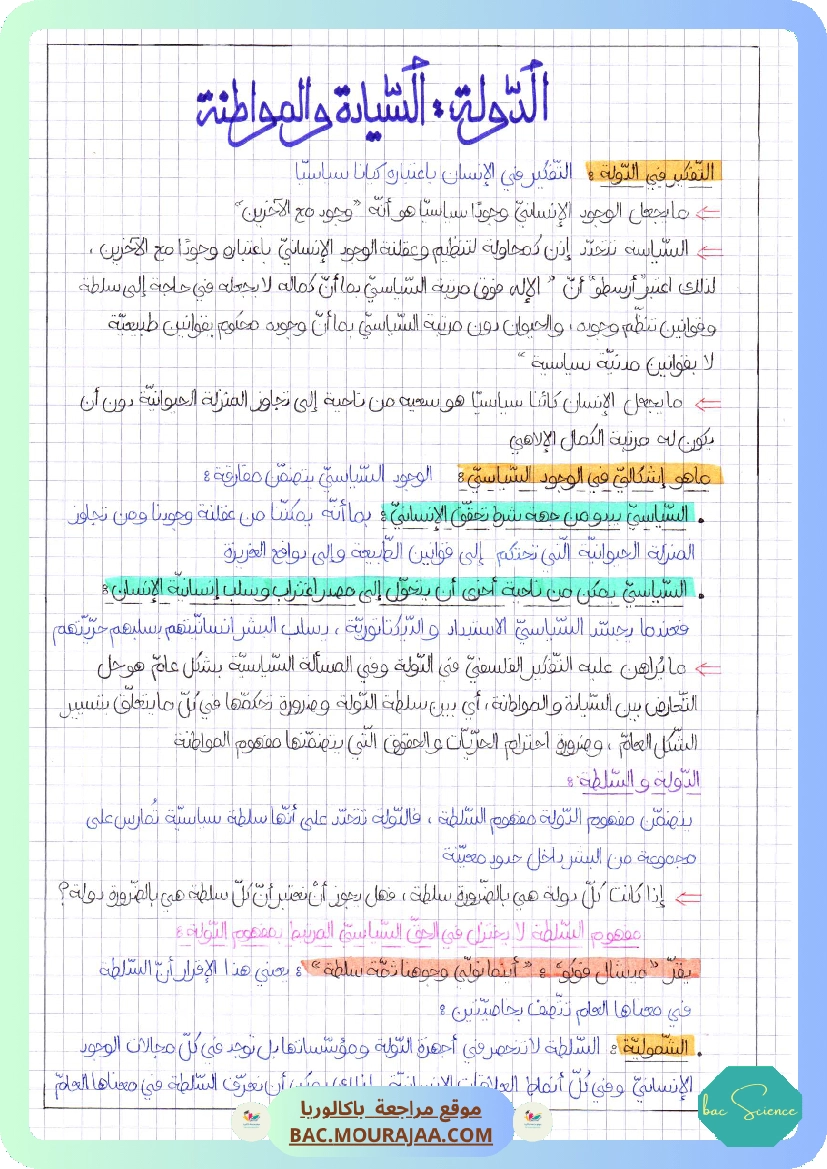 الدّولة : السّيادة والمواطنة
التّفكير في الدّولة : التّفكير في الإنسان باعتباره كيانا سياسيّا
⇐ ما يجعل الوجود الإنسانيّ وجودًا سياسيّا هو أنّه "وجود مع الآخرين"
⇐ السّياسة تتحدّد إذن كمحاولة لتنظيم وعقلنة الوجود الإنسانيّ باعتباره وجودًا مع الآخرين ،
لذلك اعتبر أرسطو أنّ " الإله فوق مرتبة السّياسيّ بما أنّ كماله لا يجعله في حاجة إلى سلطة
وقوانين تنظّم وجوده ، والحيوان دون مرتبة السّياسيّ بما أنّ وجوده محكوم بقوانين طبيعيّة
لا بقوانين مدنيّة سياسية "
⇐ ما يجعل الإنسان كائنا سياسيّا هو سعيه من ناحية إلى تجاوز المنزلة الحيوانيّة دون أن
يكون له مرتبة الكمال الإلاهي
ماهو إشكاليّ في الوجود السّياسيّ : الوجود السّياسيّ يتضمّن مفارقة :
. السّياسيّ يبدو من جهة شرط تحقّق الإنسانيّ : بما أنّه يمكّننا من عقلنة وجودنا ومن تجاوز
المنزلة الحيوانيّة الّتي تحتكم إلى قوانين الطّبيعة وإلى دوافع الغريزة
. السّياسيّ يمكن من ناحية أخرى أن يتحوّل إلى مصدر اغتراب وسلب إنسانيّة الإنسان :
فعندما يجسّد السّياسيّ الاستبداد والدّيكتاتوريّة ، يسلب البشر إنسانيّتهم بسلبهم حرّيّتهم
⇐ ما يُراهن عليه التّفكير الفلسفيّ في الدّولة وفي المسألة السّياسيّة بشكل عامّ هو حل
التّعارض بين السّيادة والمواطنة ، أي بين سلطة الدّولة وضرورة تحكمّها في كلّ ما يتعلّق بتسيير
الشّكل العامّ ، وضرورة احترام الحرّيّات والحقوق الّتي يتضمّنها مفهوم المواطنة
الدّولة والسّلطة :
يتضمّن مفهوم الدّولة مفهوم السّلطة ، فالدّولة تتحدّد على أنّها سلطة سياسيّة تُمارس على
مجموعة من البشر داخل حدود معيّنة
⇐ إذا كانت كلّ دولة هي بالضّرورة سلطة ، فهل يجوز أن نعتبر أنّ كلّ سلطة هي بالضّرورة دولة ؟
مفهوم السّلطة لا يختزل في الحقّ السّياسيّ المرتبط بمفهوم الدّولة :
يقرّ "ميشال فوكو" : "أينما نولّي وجوهنا ثمّة سلطة" : يعني هذا الإقرار أنّ السّلطة
في معناها العام تتّصف بخاصيّتين :
. الشّموليّة : السّلطة لا تنحصر في أجهزة الدّولة ومؤسّساتها بل توجد في كلّ مجالات الوجود
الإنسانيّ وفي كُلّ أنماط العلاقات الإنسانيّة ، لذلك يمكن أن نعرّف السّلطة في معناها العامّ
bac Science
موقع مراجعة باكالوريا
BAC.MOURAJAA.COM